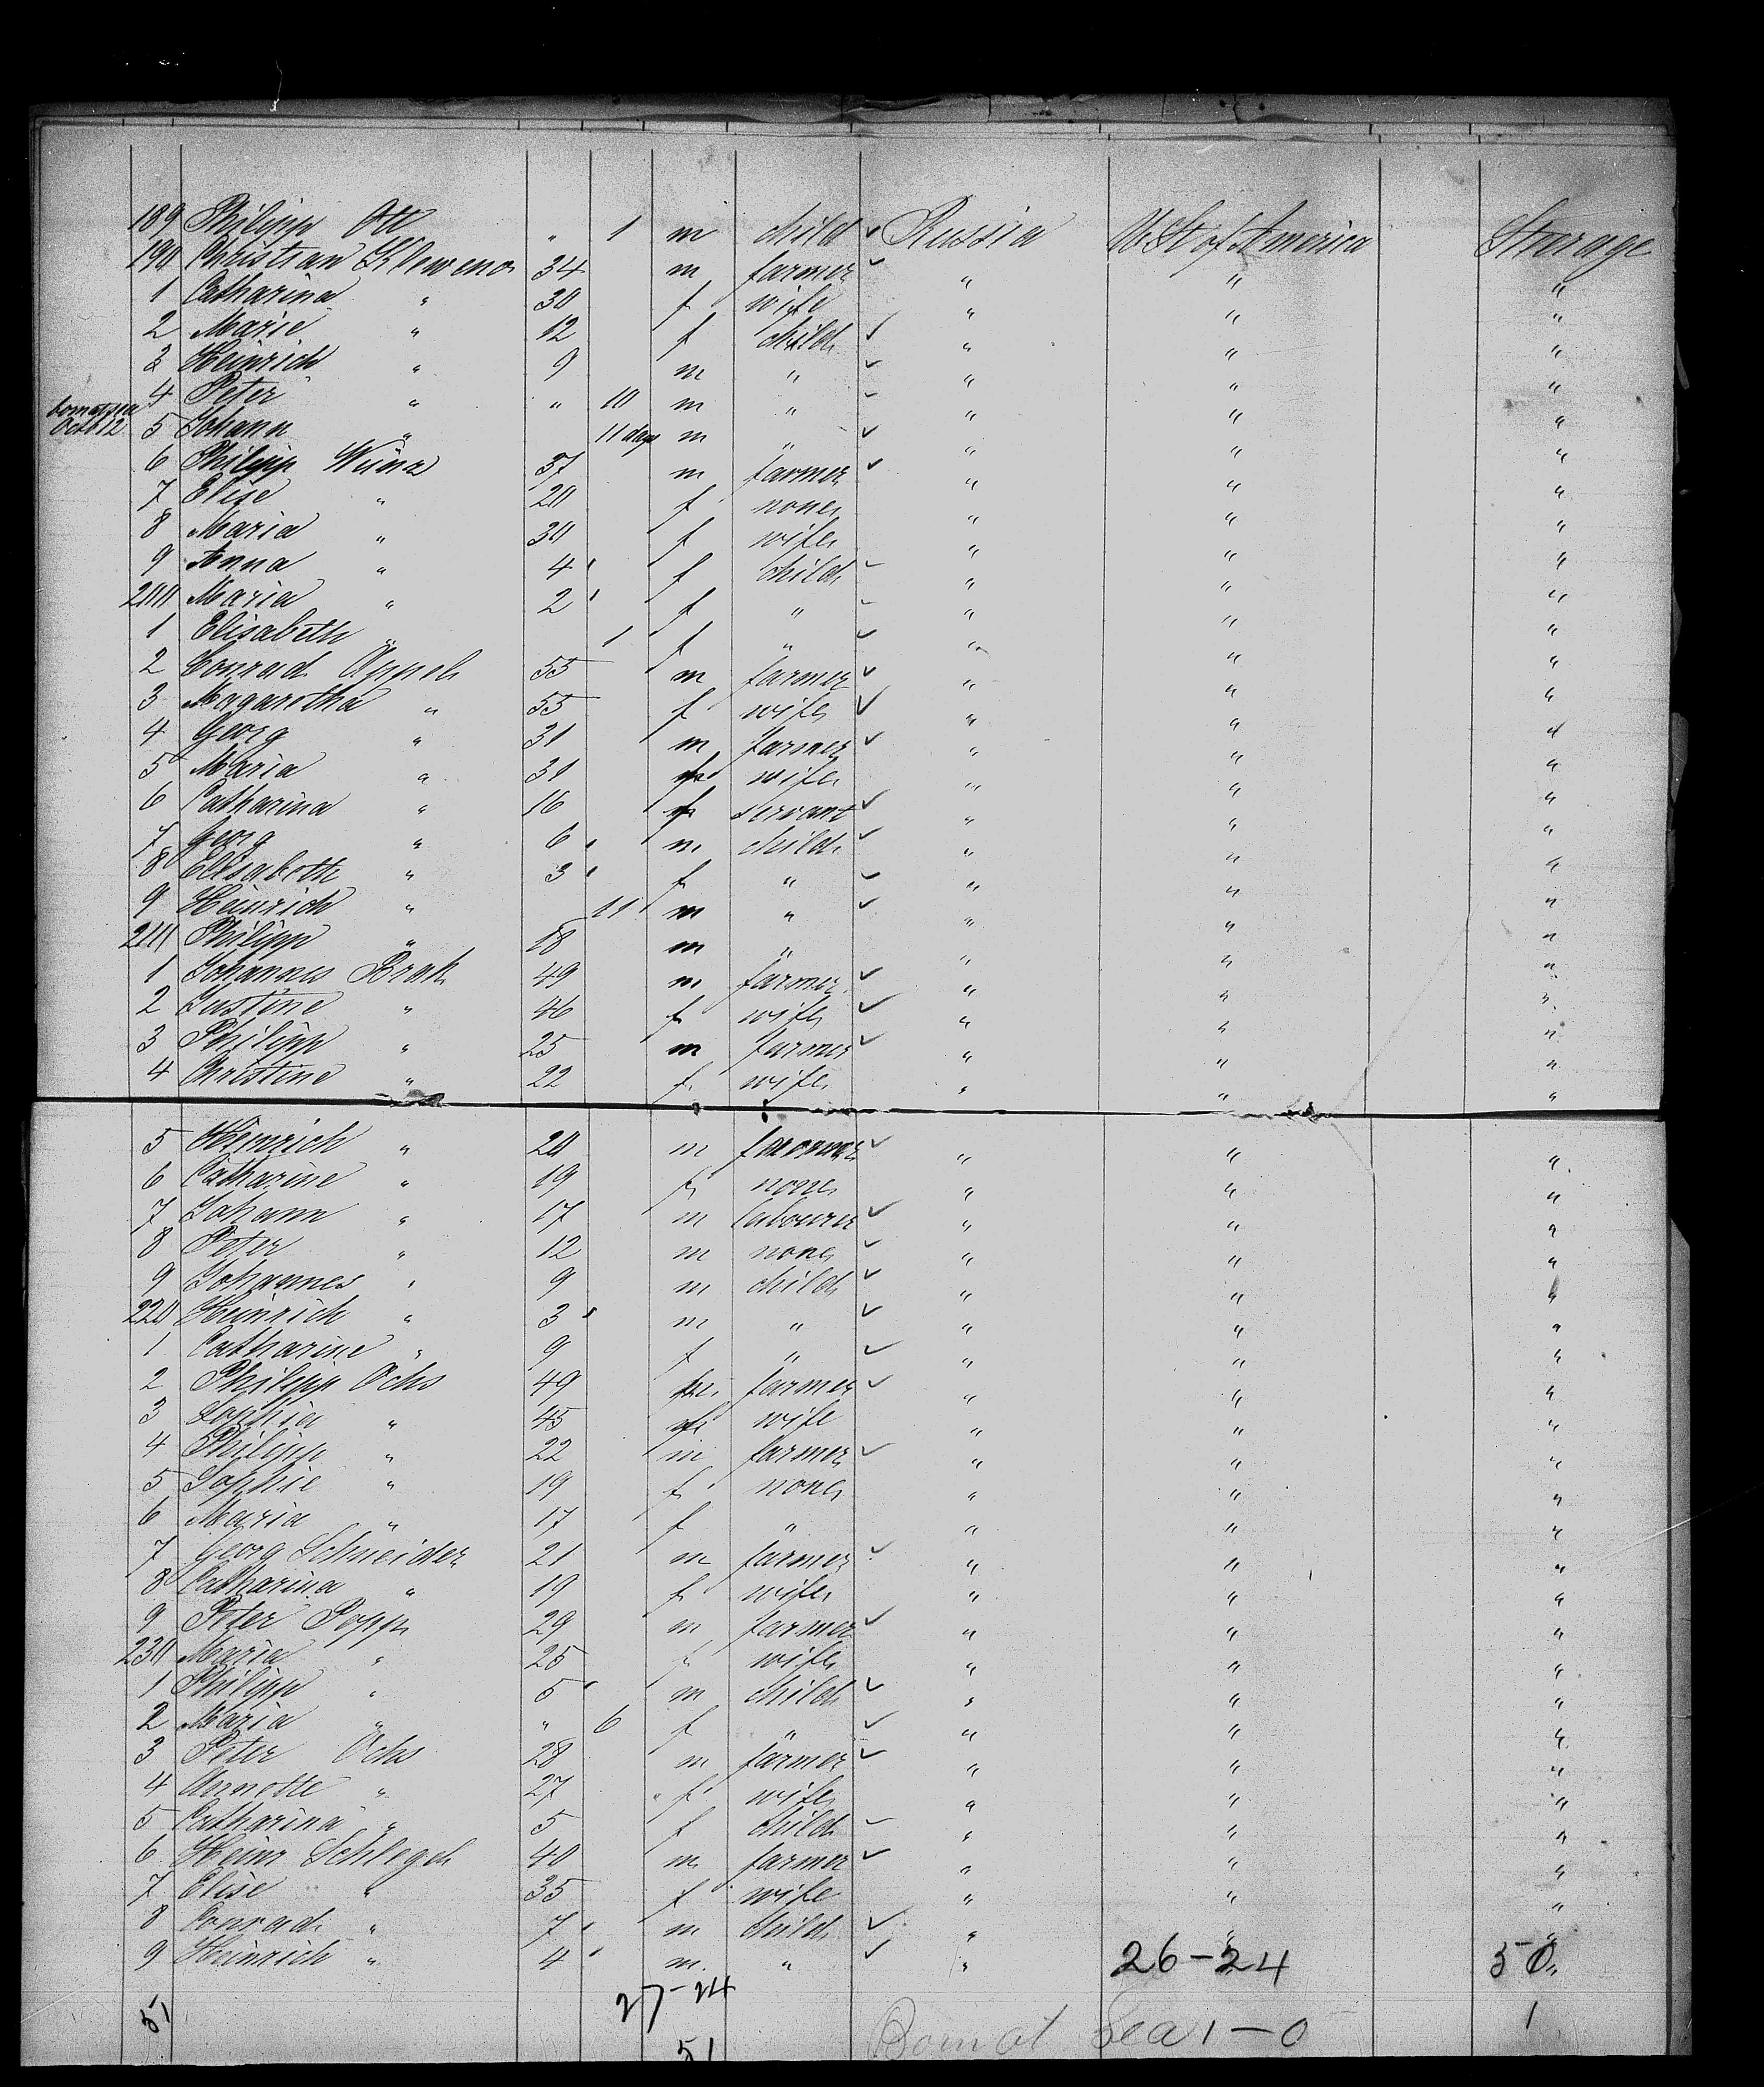 189 Philipp Ott " 1 m child ✓ Russia U. St of America Sturage
190 Christian Kleweno 34 m farmer ✓ " " "
1 Catharina " 30 f wife " " "
2 Marie " 12 f child ✓ " " "
3 Heinrich " 9 m " ✓ " " "
4 Peter " " 10 m " ✓ " " "
born at sea Oct 12 5 Johann " 11 days m " ✓ " " "
6 Philipp 37 m farmer ✓ " " "
7 Elise " 20 f none " " "
8 Maria " 30 f wife " " "
9 Anna " 4 f child ✓ " " "
200 Maria " 2 f " ✓ " " "
1 Elisabeth " 1 f " ✓ " " "
2 Conrad Appel 55 m farmer ✓ " " "
3 Magaretha " 55 f wife ✓ " " "
4 Georg " 31 m farmer ✓ " " "
5 Maria " 31 f wife " " "
6 Catharina " 16 f servant ✓ " " "
7 Georg " 6 m child ✓ " " "
8 Elisabeth " 3 f " ✓ " " "
9 Heinrich " 11 m " ✓ " " "
210 Philipp " 18 m " " " "
1 Johannes Brak 49 m farmer ✓ " " "
2 Justine " 46 f wife ✓ " " "
3 Philipp " 25 m farmer ✓ " " "
4 Christine " 22 f wife " " "
5 Heinrich " 20 m farmer ✓ " " "
6 Catharine " 19 f none " " "
7 Johann " 17 m labourer ✓ " " "
8 Peter " 12 m none ✓ " " "
9 Johannes " 9 m child ✓ " " "
220 Heinrich " 3 m " ✓ " " "
1 Catharine " 9 f " ✓ " " "
2 Philipp Ochs 49 m farmer ✓ " " "
3 Sophia " 45 f wife " " "
4 Philipp " 22 m farmer ✓ " " "
5 Sophie " 19 f none " " "
6 Maria " 17 f " " " "
7 Georg Schneider 21 m farmer ✓ " " "
8 Catharina " 19 f wife " " "
9 Peter Popp 29 m farmer ✓ " " "
230 Maria " 25 f wife " " "
1 Philipp " 5 m child ✓ " " "
2 Maria " " 6 f " ✓ " " "
3 Peter Ochs 28 m farmer ✓ " " "
4 Annotte " 27 f wife " " "
5 Catharina " 5 f child ✓ " " "
6 Heinr Schlegel 40 m farmer ✓ " " "
7 Elise " 35 f wife " " "
8 Conrad " 7 m child ✓ " " "
9 Heinrich " 4 m " ✓ " 26-24 50
27-24
51 51 Born at Sea 1-0 1